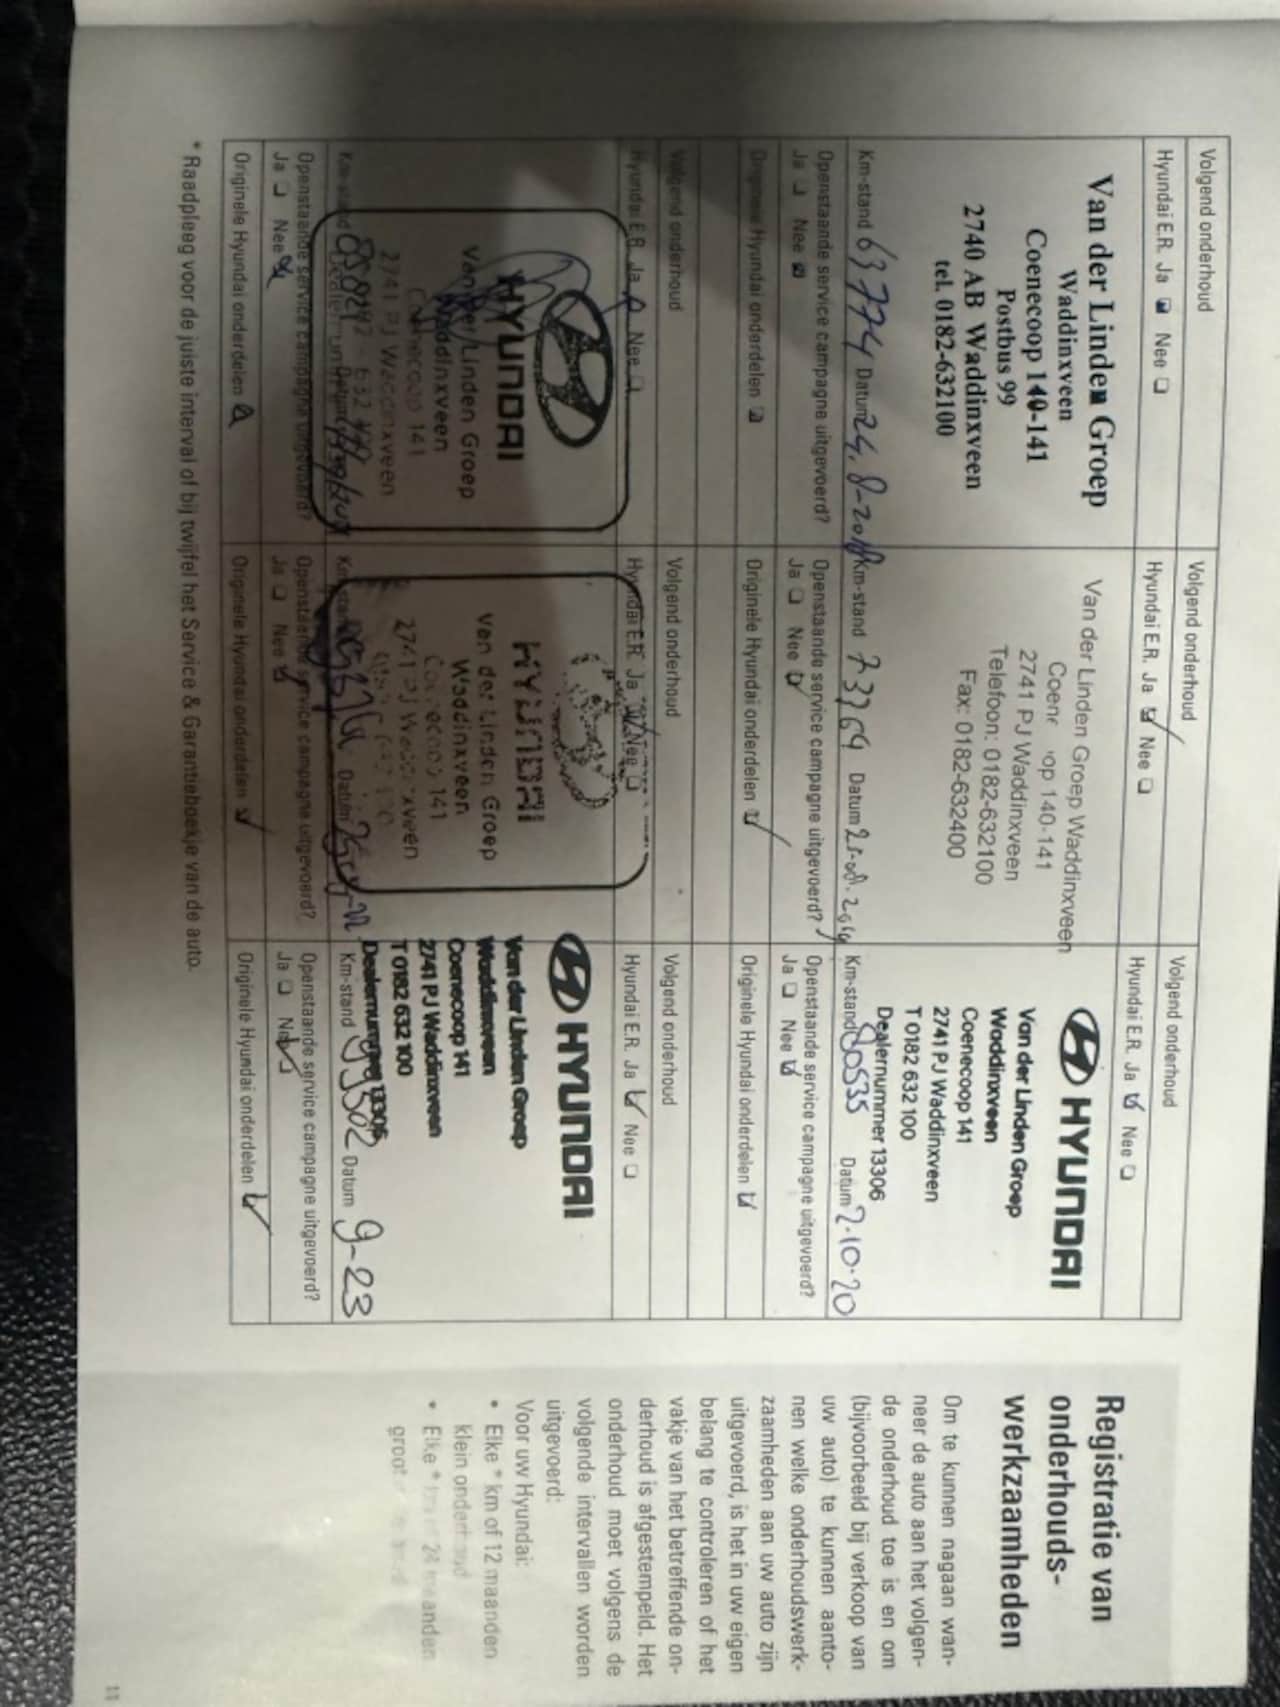 Volgend onderhoud
Hyundai E.R. Ja Nee
Van der Linden Groep
Waddinxveen
Coenecoop 140-141
Postbus 99
2740 AB Waddinxveen
tel. 0182-632100
Km-stand 63774 Datum 24-8-2018
Openstaande service campagne uitgevoerd?
Ja Nee
Originele Hyundai onderdelen
Volgend onderhoud
Hyundai E.R. Ja Nee
Van der Linden Groep Waddinxveen
Coen op 140-141
2741 PJ Waddinxveen
Telefoon: 0182-632100
Fax: 0182-632400
Km-stand 73369 Datum
Openstaande service campagne uitgevoerd?
Ja Nee
Originele Hyundai onderdelen
Volgend onderhoud
Hyundai E.R. Ja Nee
HYUNDAI
Van der Linden Groep
Waddinxveen
Coenecoop 141
2741 PJ Waddinxveen
T 0182 632 100
Dealernummer 13306
Km-stand 80535 Datum 2-10-20
Openstaande service campagne uitgevoerd?
Ja Nee
Originele Hyundai onderdelen
Volgend onderhoud
Hyundai E.R. Ja Nee
HYUNDAI
Van der Linden Groep
Waddinxveen
Coenecoop 141
2741 PJ Waddinxveen
Km-stand
Openstaande service campagne uitgevoerd?
Ja Nee
Originele Hyundai onderdelen
Volgend onderhoud
Hyundai E.R. Ja Nee
HYUNDAI
Van der Linden Groep
Waddinxveen
Coenecoop 141
2741 PJ Waddinxveen
Km-stand Datum
Openstaande service campagne uitgevoerd?
Ja Nee
Originele Hyundai onderdelen
Volgend onderhoud
Hyundai E.R. Ja Nee
HYUNDAI
Van der Linden Groep
Waddinxveen
Coenecoop 141
2741 PJ Waddinxveen
T 0182 632 100
Dealernummer 13306
Km-stand 99302 Datum 9-23
Openstaande service campagne uitgevoerd?
Ja Nee
Originele Hyundai onderdelen
* Raadpleeg voor de juiste interval of bij twijfel het Service & Garantieboekje van de auto.
Registratie van
onderhouds-
werkzaamheden
Om te kunnen nagaan wan-
neer de auto aan het volgen-
de onderhoud toe is en om
(bijvoorbeeld bij verkoop van
uw auto) te kunnen aanto-
nen welke onderhoudswerk-
zaamheden aan uw auto zijn
uitgevoerd, is het in uw eigen
belang te controleren of het
vakje van het betreffende on-
derhoud is afgestempeld. Het
onderhoud moet volgens de
volgende intervallen worden
uitgevoerd:
Voor uw Hyundai:
• Elke * km of 12 maanden
klein onderhoud
• Elke * km of 24 maanden
groot
11